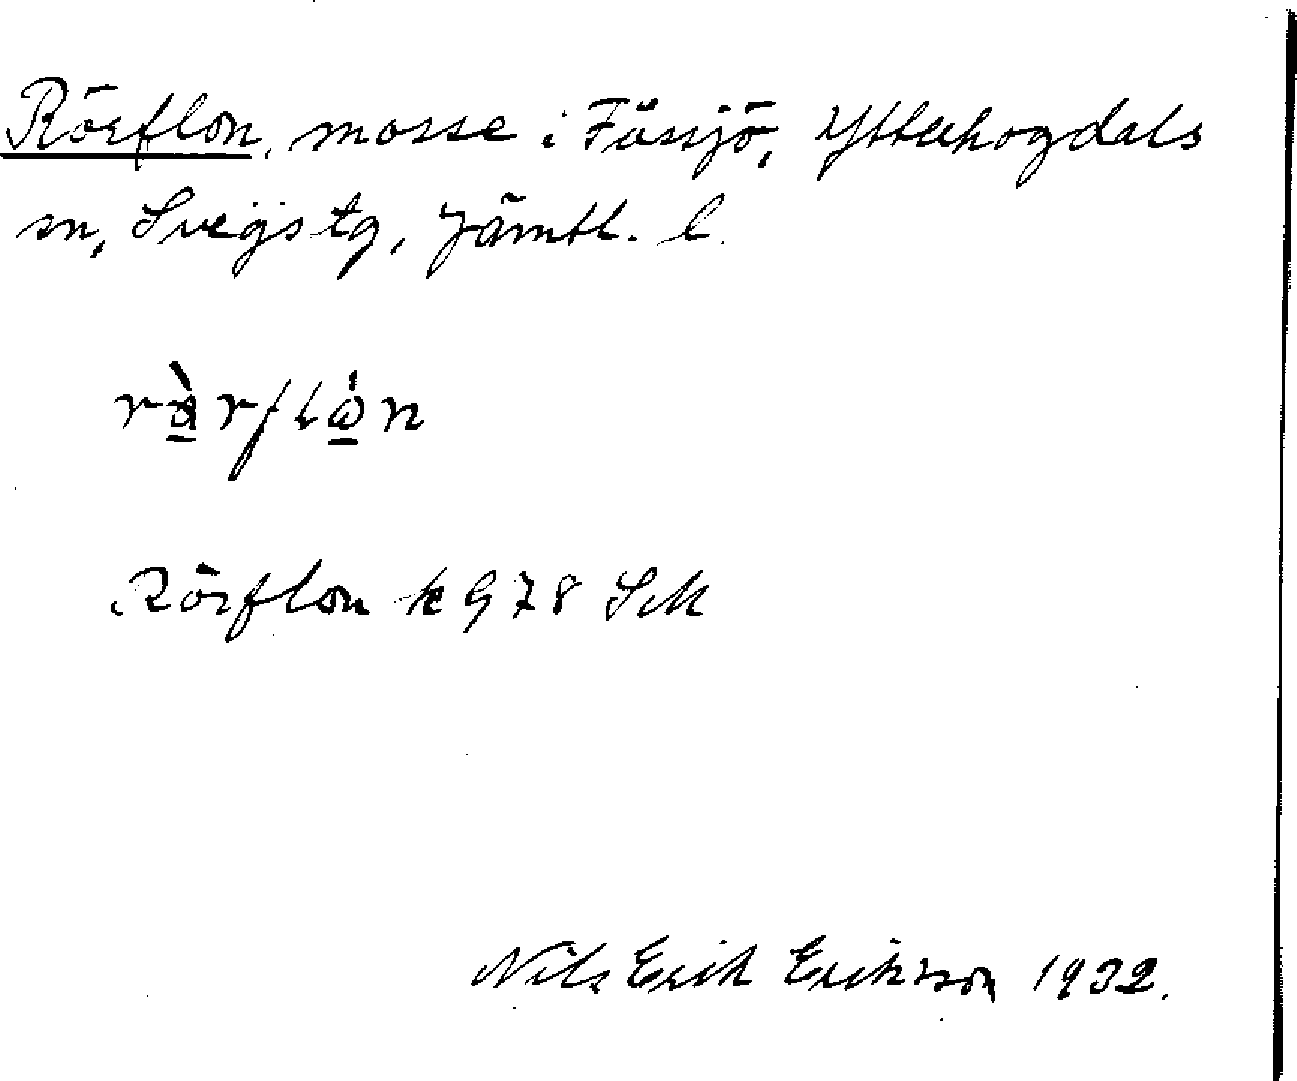 Rörflon, mosse i Fåssjö, Ytterhogdals
sn, Svegs tg, Jämtl. l.
Rörflon k 978 Sk
Nils Erik Erikson 1932.